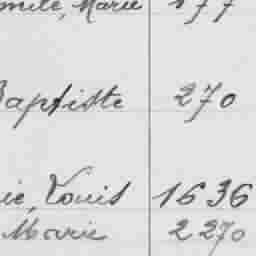 Marie 177
Baptiste 270
Louis 1636
Marie 2270